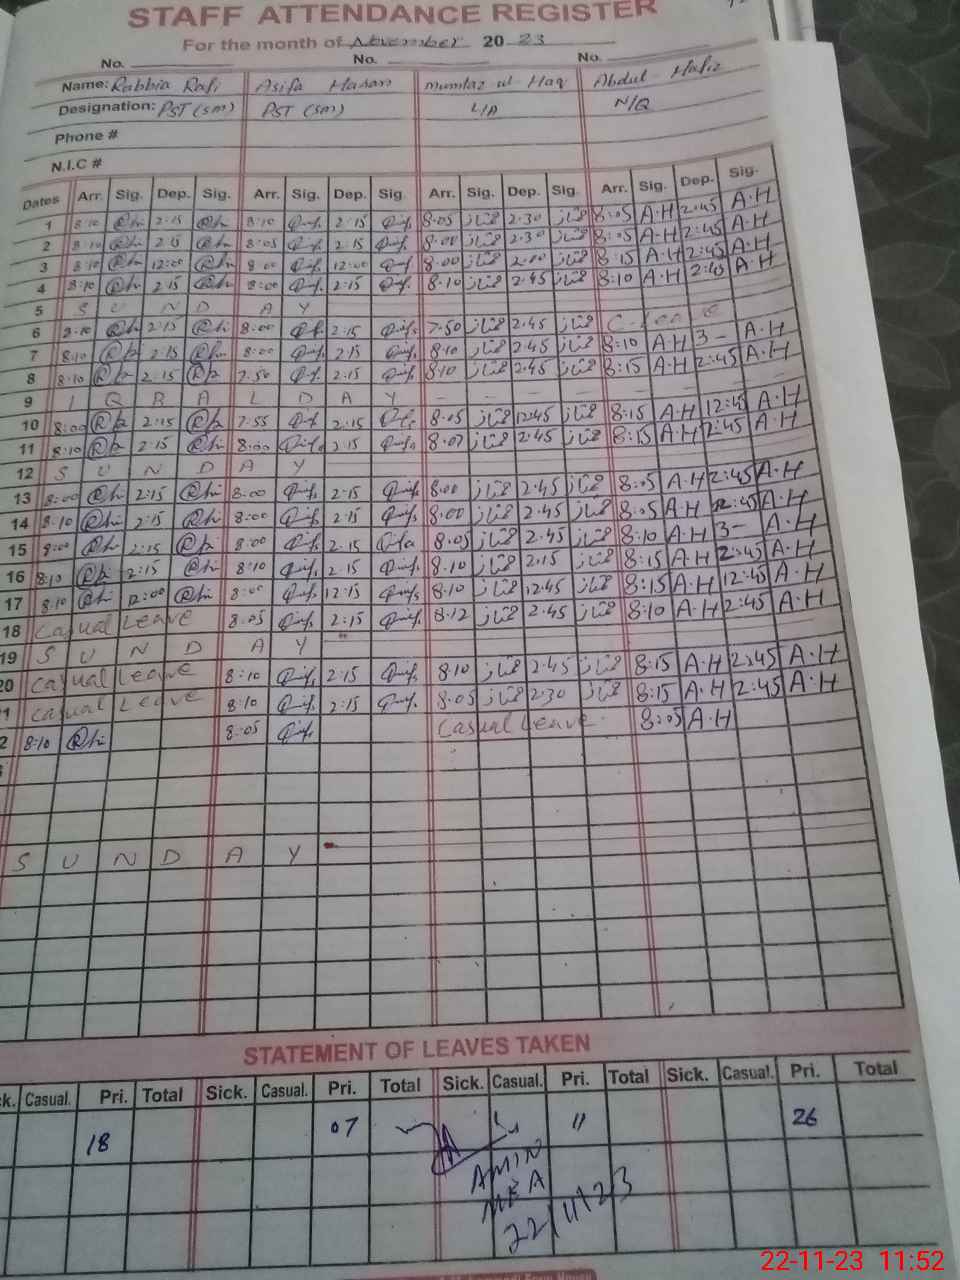 STAFF ATTENDANCE REGISTER
For the month of November 20 23
No. No. No.
Name: Rabbia Rafi Asifa Hanan Mumtaz ul Haq Abdul Hafiz
Designation: PST (sm) PST (sm) L/A N/Q
Phone #
N.I.C #
Dates Arr. Sig. Dep. Sig. Arr. Sig. Dep. Sig. Arr. Sig. Dep. Sig. Arr. Sig. Dep. Sig.
1 8:10 2:15 8:10 2:15 8.05 ممتاز 2.30 ممتاز 8:05 A.H 2:45 A.H
2 8:10 2:15 8:05 2:15 8.00 ممتاز 2.30 ممتاز 8:05 A.H 2:45 A.H
3 8:10 12:00 8:00 12:00 8.00 ممتاز 2.00 ممتاز 8:15 A.H 2:45 A.H
4 8:10 2:15 8:00 2:15 8.10 ممتاز 2.45 ممتاز 8:10 A.H 2:45 A.H
5 S U N D A Y
6 8:10 2:15 8:00 2:15 7.50 ممتاز 2.45 ممتاز C. Leave
7 8:10 2:15 8:00 2:15 8.10 ممتاز 2.45 ممتاز 8:10 A.H 3- A.H
8 8:10 2:15 7:50 2:15 8.10 ممتاز 2.45 ممتاز 8:15 A.H 2:45 A.H
9 I Q B A L D A Y - - - - - - - -
10 8:00 2:15 7:55 2:15 8.05 ممتاز 12.45 ممتاز 8:15 A.H 12:45 A.H
11 8:10 2:15 8:00 2:15 8.07 ممتاز 2.45 ممتاز 8:15 A.H 2:45 A.H
12 S U N D A Y
13 8:00 2:15 8:00 2:15 8.00 ممتاز 2.45 ممتاز 8:05 A.H 2:45 A.H
14 8:10 2:15 8:00 2:15 8.00 ممتاز 2.45 ممتاز 8:05 A.H 2:45 A.H
15 8:00 2:15 8:00 2:15 8.05 ممتاز 2.45 ممتاز 8:10 A.H 3- A.H
16 8:10 2:15 8:10 2:15 8.10 ممتاز 2.15 ممتاز 8:15 A.H 2:45 A.H
17 8:10 12:00 8:00 12:15 8.10 ممتاز 12.45 ممتاز 8:15 A.H 12:45 A.H
18 Casual Leave 8:05 2:15 8.12 ممتاز 2.45 ممتاز 8:10 A.H 2:45 A.H
19 S U N D A Y
20 Casual Leave 8:10 2:15 8.10 ممتاز 2.45 ممتاز 8:15 A.H 2:45 A.H
1 Casual Leave 8:10 2:15 8.05 ممتاز 2.30 ممتاز 8:15 A.H 2:45 A.H
2 8:10 8:05 Casual Leave. 8:05 A.H
S U N D A Y
STATEMENT OF LEAVES TAKEN
ck. Casual. Pri. Total Sick. Casual. Pri. Total Sick. Casual. Pri. Total Sick. Casual. Pri. Total
18 07 11 26
AMIN
MEA
22/11/23
22-11-23 11:52